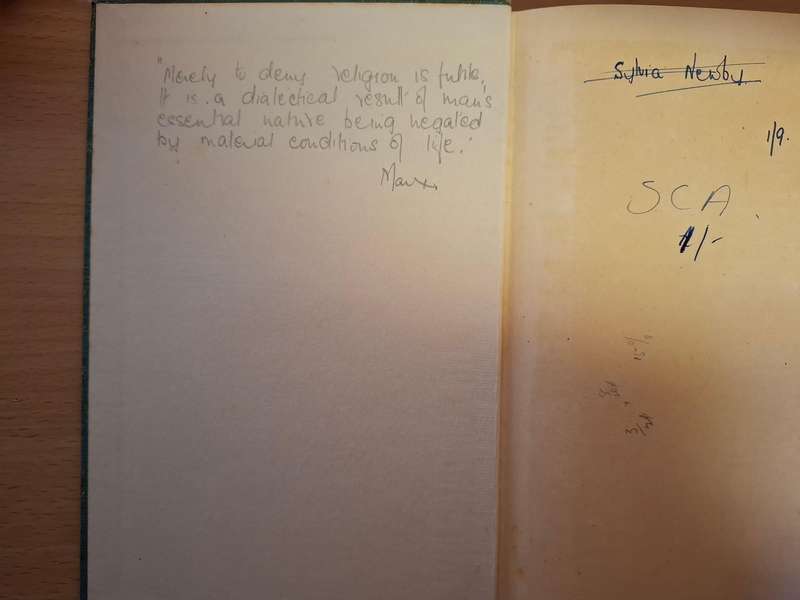 "Merely to deny religion is futile,
It is a dialectical result of man's
essential nature being negated
by material conditions of life."
Marx.
Sylvia Newby.
1/9.
SCA.
1/-
15%